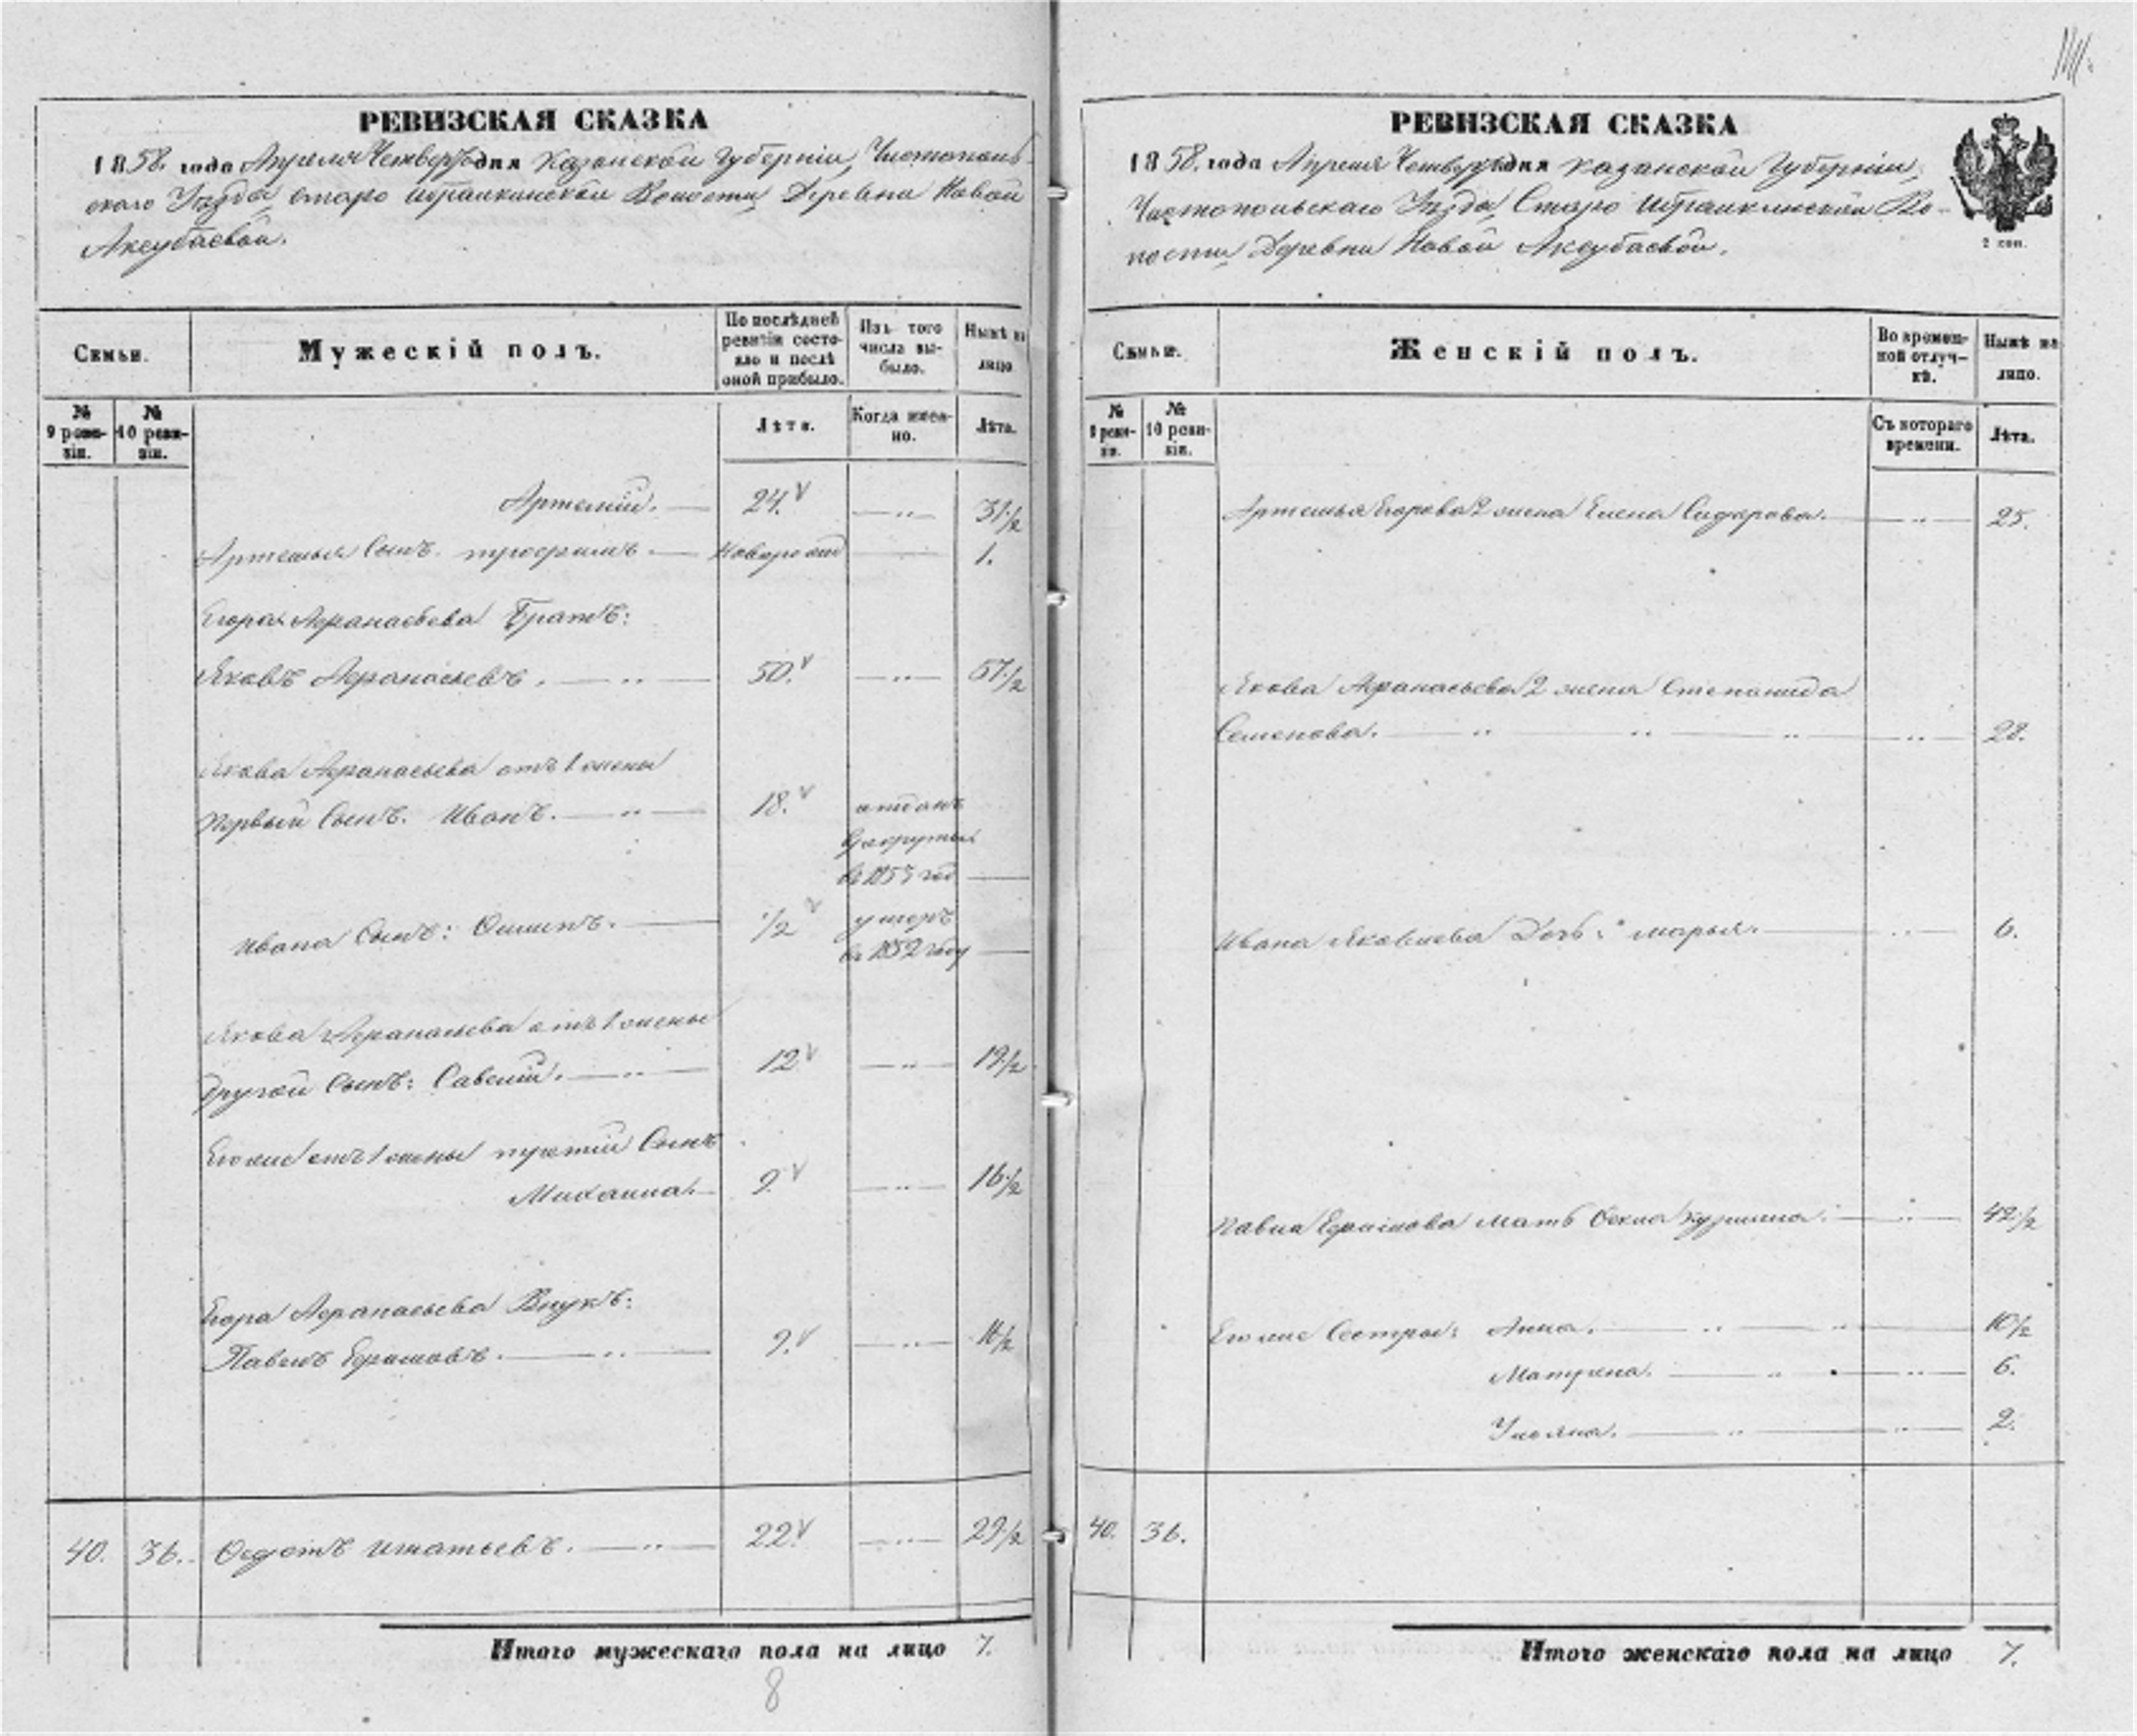 РЕВИЗСКАЯ СКАЗКА
1858. года Апреля Четверт дня Казанской Губернiи, Чистополь-
скаго Уѣзда, Старо Ибрайкинской Волости, Деревни Новой
Аксубаевой.
Семьи.
Мужескiй полъ.
По послѣдней
ревизiи состо-
яло и послѣ
оной прибыло.
Изъ того
числа вы-
было.
Нынѣ на
лицо
№
9 реви-
зiи.
№
10 реви-
зiи.
Лѣта.
Когда имен-
но.
Лѣта.
Артемiй. 24. 31½
Артемья Сынъ. трофимъ. Новорожд 1.
Егора Афанасьева Братъ:
Яковъ Афанасьевъ. 50. 57½
Якова Афанасьева отъ 1 жены
первый Сынъ. Иванъ. 18. отданъ
в рекруты
въ 1853 год
Ивана Сынъ: Осипъ. ½ умеръ
въ 1852 году
Якова Афанасьева отъ 1 жены
другой Сынъ: Савелiй. 12 19½
Его же отъ 1 жены третiй Сынъ
Михаила. 9. 16½
Егора Афанасьева Внукъ:
Павелъ Ефимовъ. 9. 16½
40. 36. Федотъ Игнатьевъ. 22 29½
Итого мужескаго пола на лицо 7.
8
РЕВИЗСКАЯ СКАЗКА
1858. года Апреля Четверт дня Казанской Губернiи,
Чистопольскаго Уѣзда, Старо Ибрайкинской Во-
лости, Деревни Новой Аксубаевой.
2 коп.
Семьи.
Женскiй полъ.
Во времен-
ной отлуч-
кѣ.
Нынѣ на
лицо.
№
9 реви-
зiи.
№
10 реви-
зiи.
Съ котораго
времени.
Лѣта.
Артемья Егорова 2 жена Елена Сидорова. 25.
Якова Афанасьева 2 жена Степанида
Семенова. 28.
Ивана Яковлева Дочь: марья. 6.
Павла Ефимова мать Фекла Кузмина. 42½
Его же Сестры: Анна. 10½
Матрена. 6.
Ульяна. 2.
40. 36.
Итого женскаго пола на лицо 7.